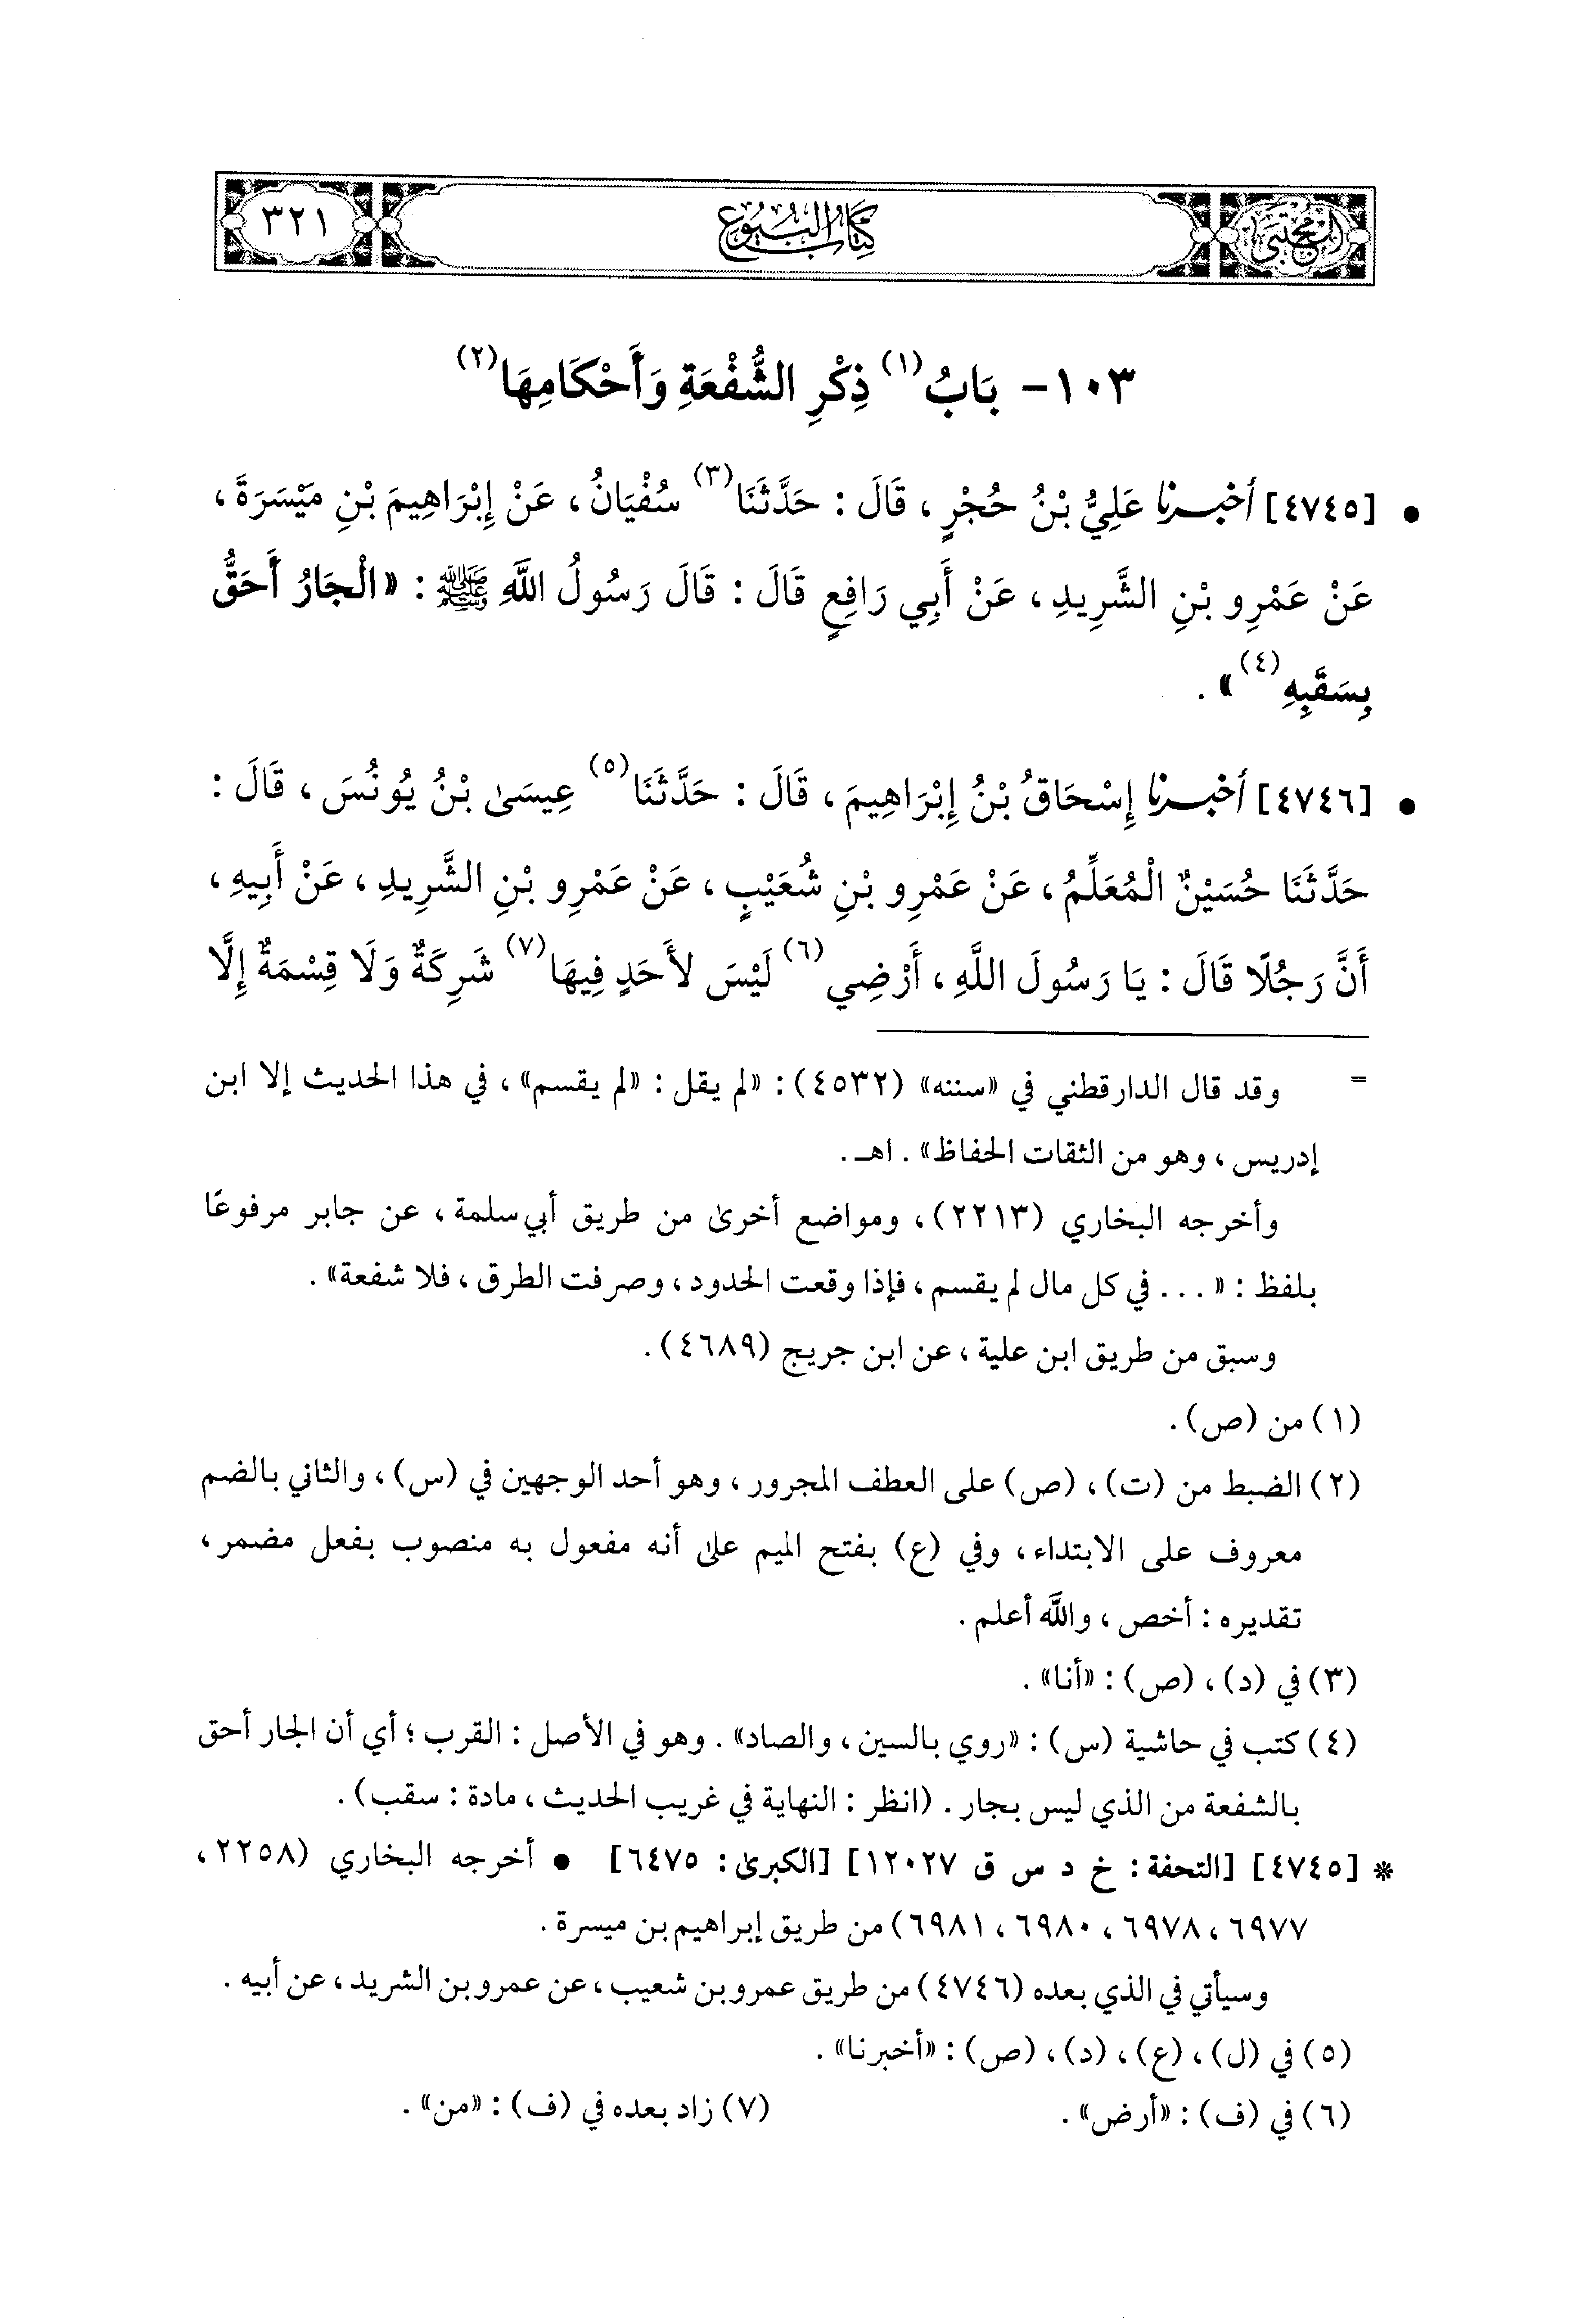 المجتبى كتاب البيوع ٣٢١
١٠٣- بَابُ(١) ذِكْرِ الشُّفْعَةِ وَأَحْكَامِهَا(٢)
• [٤٧٤٥] أخبرنا عَلِيُّ بْنُ حُجْرٍ، قَالَ: حَدَّثَنَا(٣) سُفْيَانُ، عَنْ إِبْرَاهِيمَ بْنِ مَيْسَرَةَ،
عَنْ عَمْرِو بْنِ الشَّرِيدِ، عَنْ أَبِي رَافِعٍ قَالَ: قَالَ رَسُولُ اللَّهِ ﷺ: «الْجَارُ أَحَقُّ
بِسَقَبِهِ(٤)».
• [٤٧٤٦] أخبرنا إِسْحَاقُ بْنُ إِبْرَاهِيمَ، قَالَ: حَدَّثَنَا(٥) عِيسَىٰ بْنُ يُونُسَ، قَالَ:
حَدَّثَنَا حُسَيْنٌ الْمُعَلِّمُ، عَنْ عَمْرِو بْنِ شُعَيْبٍ، عَنْ عَمْرِو بْنِ الشَّرِيدِ، عَنْ أَبِيهِ،
أَنَّ رَجُلًا قَالَ: يَا رَسُولَ اللَّهِ، أَرْضِي(٦) لَيْسَ لأَحَدٍ فِيهَا(٧) شَرِكَةٌ وَلَا قِسْمَةٌ إِلَّا
= وقد قال الدارقطني في «سننه» (٤٥٣٢): «لم يقل: «لم يقسم»، في هذا الحديث إلا ابن
إدريس، وهو من الثقات الحفاظ». اهـ.
وأخرجه البخاري (٢٢١٣)، ومواضع أخرىٰ من طريق أبي سلمة، عن جابر مرفوعًا
بلفظ: «... في كل مال لم يقسم، فإذا وقعت الحدود، وصرفت الطرق، فلا شفعة».
وسبق من طريق ابن علية، عن ابن جريج (٤٦٨٩).
(١) من (ص).
(٢) الضبط من (ت)، (ص) على العطف المجرور، وهو أحد الوجهين في (س)، والثاني بالضم
معروف على الابتداء، وفي (ع) بفتح الميم علىٰ أنه مفعول به منصوب بفعل مضمر،
تقديره: أخص، واللَّه أعلم.
(٣) في (د)، (ص): «أنا».
(٤) كتب في حاشية (س): «روي بالسين، والصاد». وهو في الأصل: القرب؛ أي أن الجار أحق
بالشفعة من الذي ليس بجار. (انظر: النهاية في غريب الحديث، مادة: سقب).
* [٤٧٤٥] [التحفة: خ د س ق ١٢٠٢٧] [الكبرىٰ: ٦٤٧٥] • أخرجه البخاري (٢٢٥٨،
٦٩٧٧، ٦٩٧٨، ٦٩٨٠، ٦٩٨١) من طريق إبراهيم بن ميسرة.
وسيأتي في الذي بعده (٤٧٤٦) من طريق عمرو بن شعيب، عن عمرو بن الشريد، عن أبيه.
(٥) في (ل)، (ع)، (د)، (ص): «أخبرنا».
(٦) في (ف): «أرض». (٧) زاد بعده في (ف): «من».